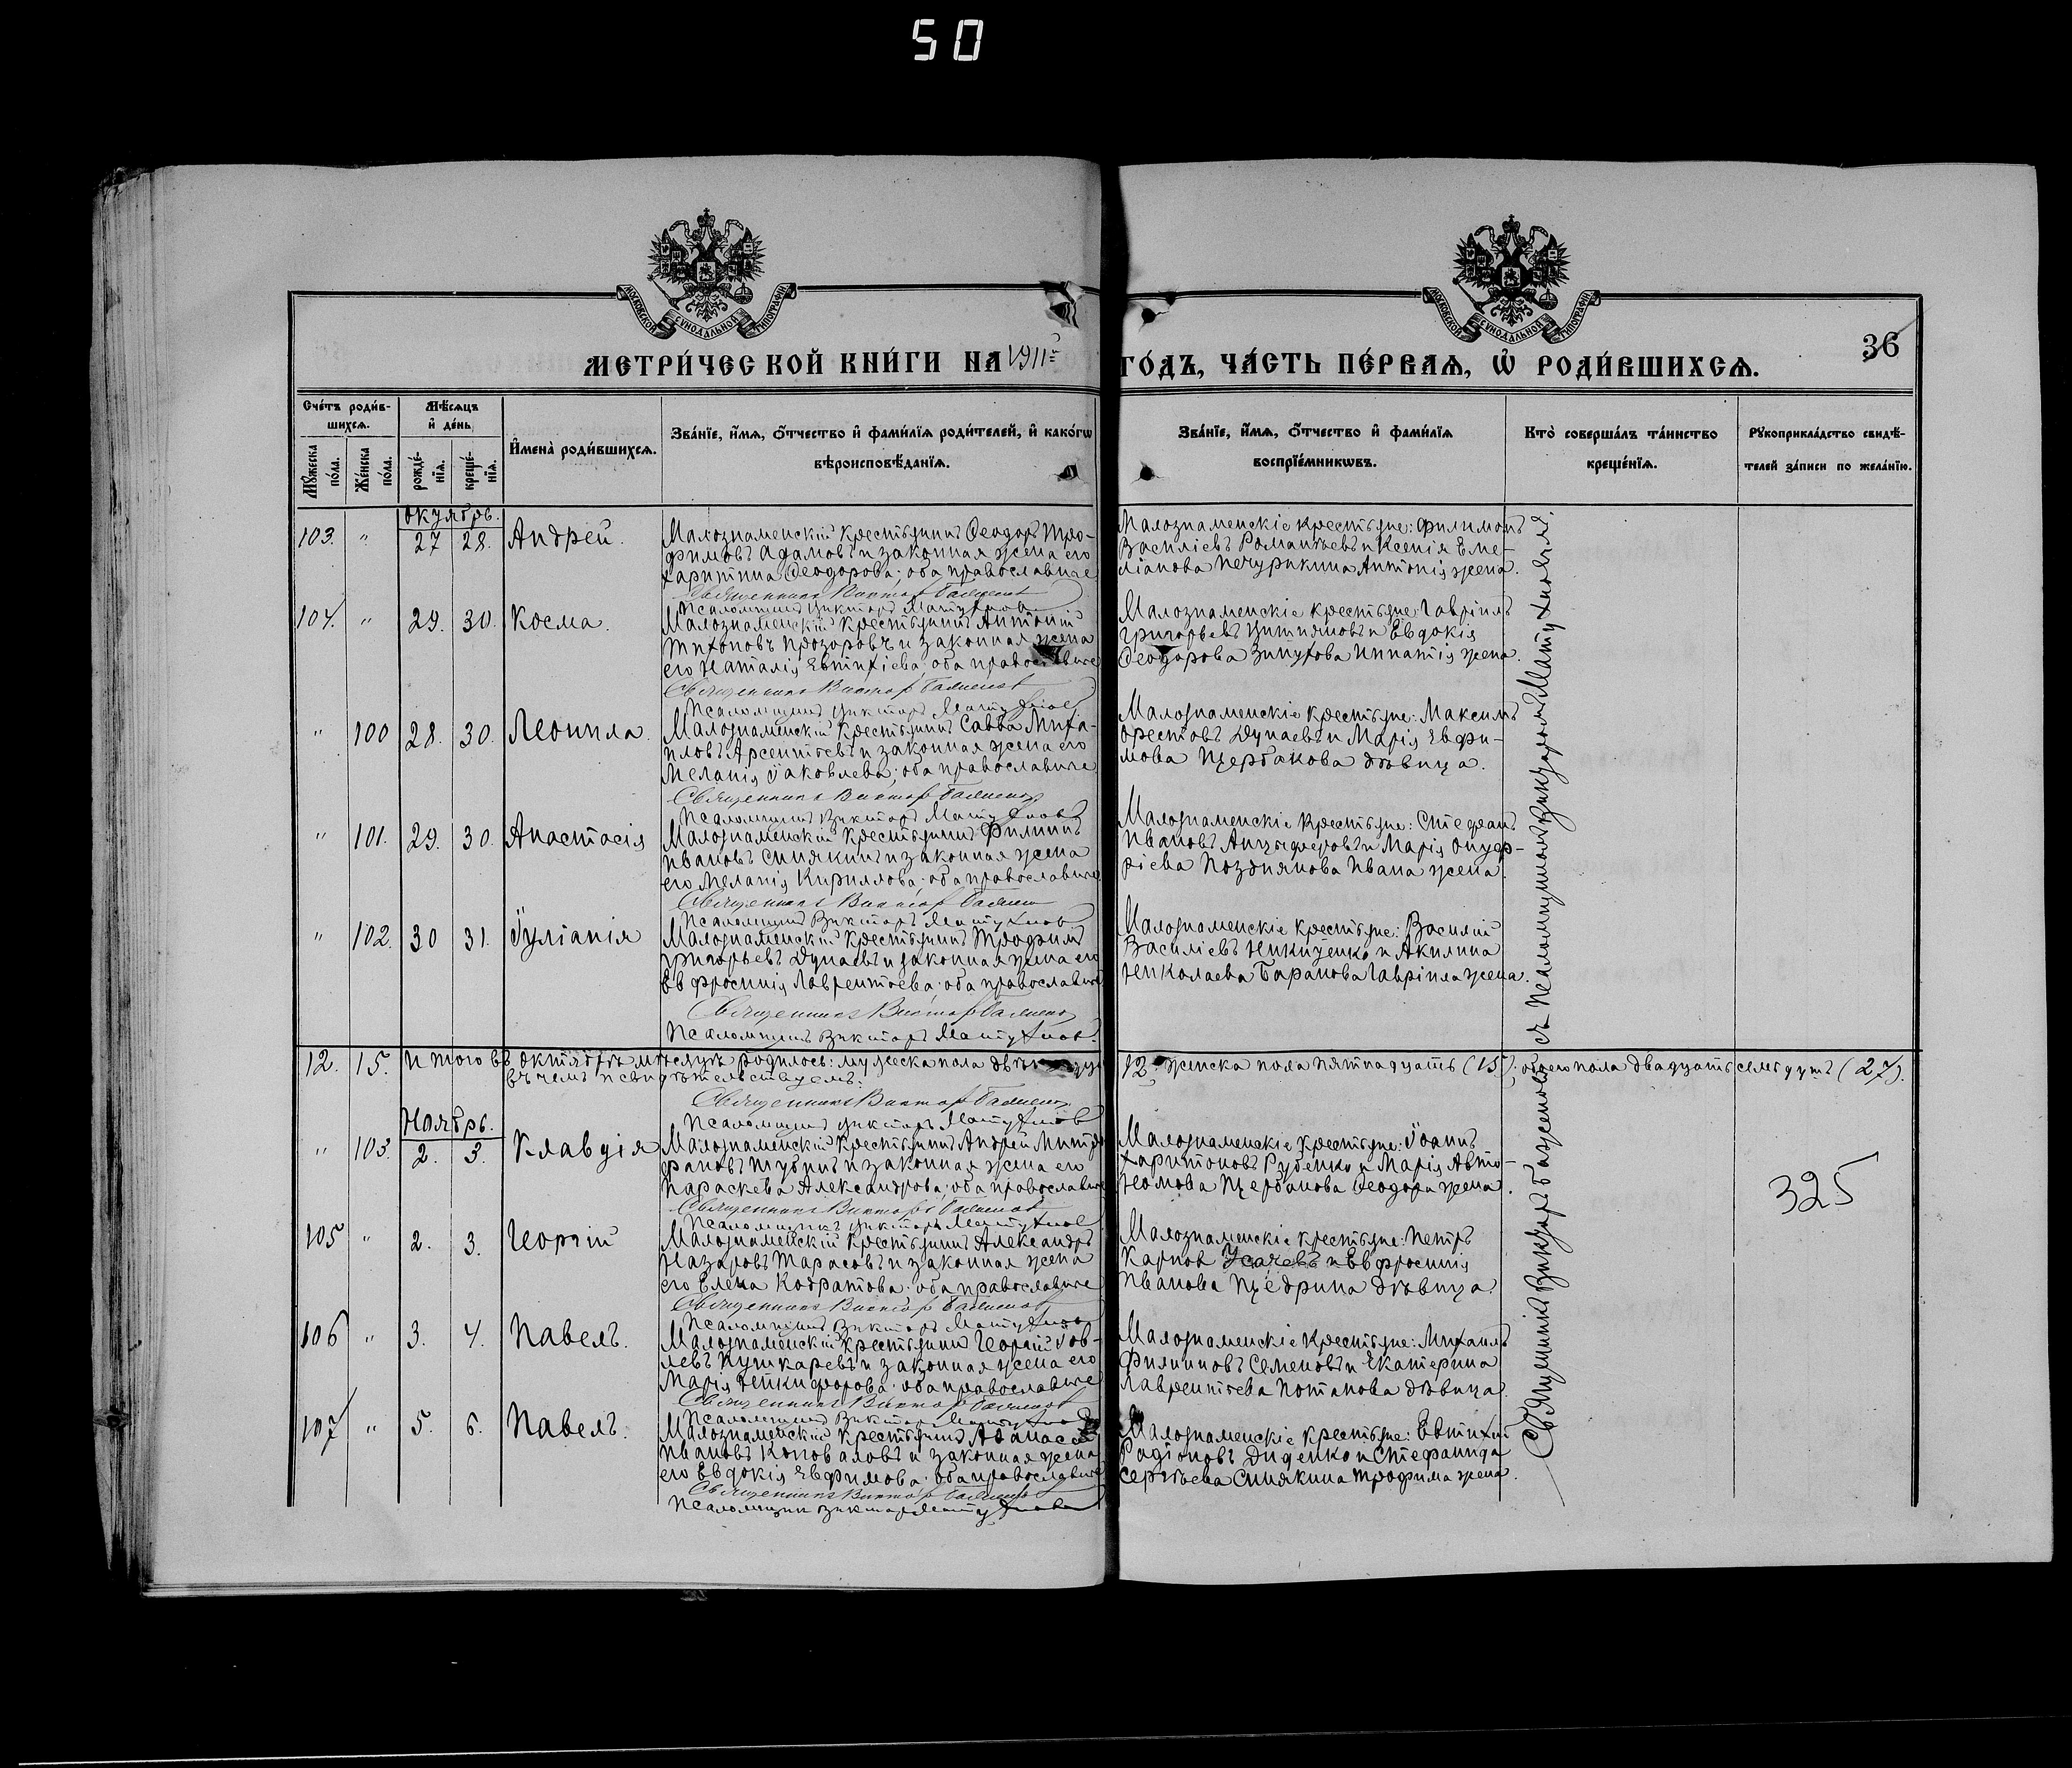 50
МОСКОВСКОЙ СѴНОДАЛЬНОЙ ТИПОГРАФІИ
МОСКОВСКОЙ СѴНОДАЛЬНОЙ ТИПОГРАФІИ
МЕТРИ́ЧЕСКОЙ КНИ́ГИ НА 1911й ГО́ДЪ, ЧА́СТЬ ПЕ́РВАѦ, Ѡ҆ РОДИ́ВШИХСѦ.
36
Сче́тъ роди́в-
шихсѧ.
Мꙋ́жеска по́ла.
Же́нска по́ла.
Мѣ́сѧцъ
и҆ де́нь
рожде́-
нїѧ.
креще́-
нїѧ.
И҆мена̀ роди́вшихсѧ.
Зва́нїе, и҆́мѧ, ѻ҆́тчество и҆ фами́лїѧ роди́телей, и҆ како́гѡ
вѣроисповѣ́данїѧ.
Зва́нїе, и҆́мѧ, ѻ҆́тчество и҆ фами́лїѧ
воспрїе́мникѡвъ.
Кто̀ соверша́лъ та́инство
креще́нїѧ.
Рꙋкоприкла́дство свидѣ́-
телей за́писи по жела́нїю.
Октябрь.
103. " 27 28. Андрей.
Малознаменскій крестьянинъ Ѳеодоръ Тро-
фимовъ Адамовъ и законная жена его
Харитина Ѳеодорова; оба православные
Священникъ Викторъ
Псаломщикъ Викторъ Матухновъ
Малознаменскіе крестьяне: Филимонъ
Василіевъ Романтьевъ и Ксенія Еме-
ліанова Печурикина Антонія жена.
104. " 29. 30. Косма.
Малознаменскій крестьянинъ Антоній
Тихоновъ Прозоровъ и законная жена
его Наталія Евтихіева; оба православные
Священникъ Викторъ
Псаломщикъ Викторъ Матухновъ
Малознаменскіе крестьяне: Гавріилъ
Григорьевъ и Евдокія
Ѳеодорова Зинухова Ипатія жена.
" 100 28. 30. Леонила.
Малознаменскій крестьянинъ Савва Миха-
иловъ Арсентьевъ и законная жена его
Меланія Іаковлева; оба православные
Священникъ Викторъ
Псаломщикъ Викторъ Матухновъ
Малознаменскіе крестьяне: Максимъ
Орестовъ Дунаевъ и Марія Евфи-
мова Щербакова дѣвица.
" 101. 29. 30. Анастасія
Малознаменскій крестьянинъ Филиппъ
Ивановъ Синякинъ и законная жена
его Меланія Кириллова; оба православные
Священникъ Викторъ
Псаломщикъ Викторъ Матухновъ
Малознаменскіе крестьяне: Стефанъ
Ивановъ Анцыферовъ и Марія Онуф-
ріева Позднякова Ивана жена.
" 102. 30 31. Іуліанія
Малознаменскій крестьянинъ Трофимъ
Григорьевъ Дунаевъ и законная жена его
Евфросинія Лаврентьева; оба православные
Священникъ Викторъ
Псаломщикъ Викторъ Матухновъ.
Малознаменскіе крестьяне: Василій
Василіевъ Никиценко и Акилина
Николаева Баранова Гавріила жена.
12. 15. Итого въ октябрѣ мѣсяцѣ родилось: мужеска пола 12, женска пола пятнадцать (15); обоего пола двадцать семь душъ (27).
въ чемъ и свидѣтельствуемъ:
Священникъ Викторъ
Псаломщикъ Викторъ Матухновъ
Ноябрь.
" 103. 2. 3. Клавдія
Малознаменскій крестьянинъ Андрей Митро
фановъ Тубинъ и законная жена его
Параскева Александрова; оба православные
Священникъ Викторъ
Псаломщикъ Викторъ Матухновъ
Малознаменскіе крестьяне: Іоаннъ
Харитоновъ Руденко и Марія Авто-
номова Щербакова Ѳеодора жена.
325
105 " 2. 3. Георгій
Малознаменскій крестьянинъ Александръ
Назаровъ Тарасовъ и законная жена
его Елена Кодратова; оба православные
Священникъ Викторъ
Псаломщикъ Викторъ Матухновъ
Малознаменскіе крестьяне: Петръ
Карпов Усачевъ и Евфросинія
Иванова Щедрина дѣвица.
106 " 3. 4. Павелъ.
Малознаменскій крестьянинъ Георгій Іов-
левъ Пушкаревъ и законная жена его
Марія Никифорова; оба православные
Священникъ Викторъ
Псаломщикъ Викторъ Матухновъ
Малознаменскіе крестьяне: Михаилъ
Филипповъ Семеновъ и Екатерина
Лаврентьева Потапова дѣвица.
107 " 5. 6. Павелъ.
Малознаменскій крестьянинъ Аѳанасій
Ивановъ Коноваловъ и законная жена
его Евдокія Евфимова; оба православные
Священникъ Викторъ
Псаломщикъ Викторъ Матухновъ
Малознаменскіе крестьяне: Евтихій
Радіоновъ Диденко и Стефанида
Сергѣева Синякина Трофима жена.
Священникъ Викторъ Баженовъ съ псаломщикомъ Викторомъ Матухновымъ